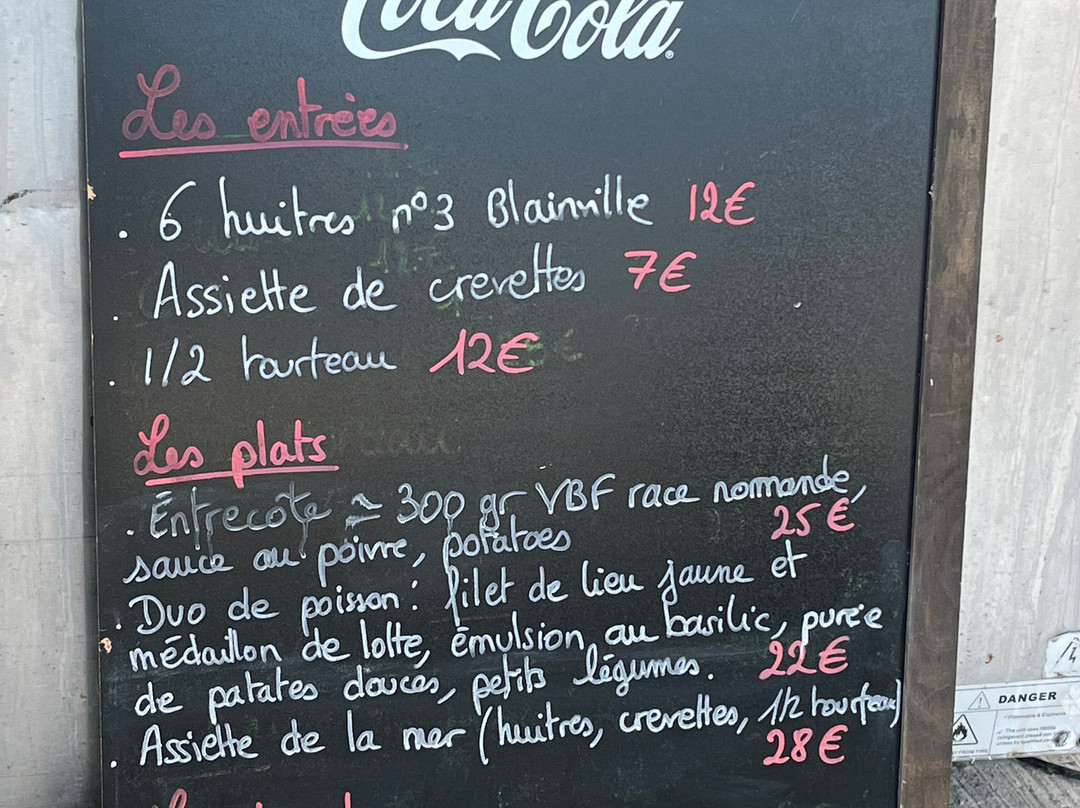 Coca-Cola
Les entrées
. 6 huitres n°3 Blainville 12€
. Assiette de crevettes 7€
. 1/2 tourteau 12€
Les plats
. Entrecôte ≃ 300 gr VBF race normande,
sauce au poivre, potatoes 25€
. Duo de poisson : filet de lieu jaune et
médaillon de lotte, émulsion au basilic, purée
de patates douces, petits légumes. 22€
. Assiette de la mer (huitres, crevettes, 1/2 tourteau)
28€
DANGER